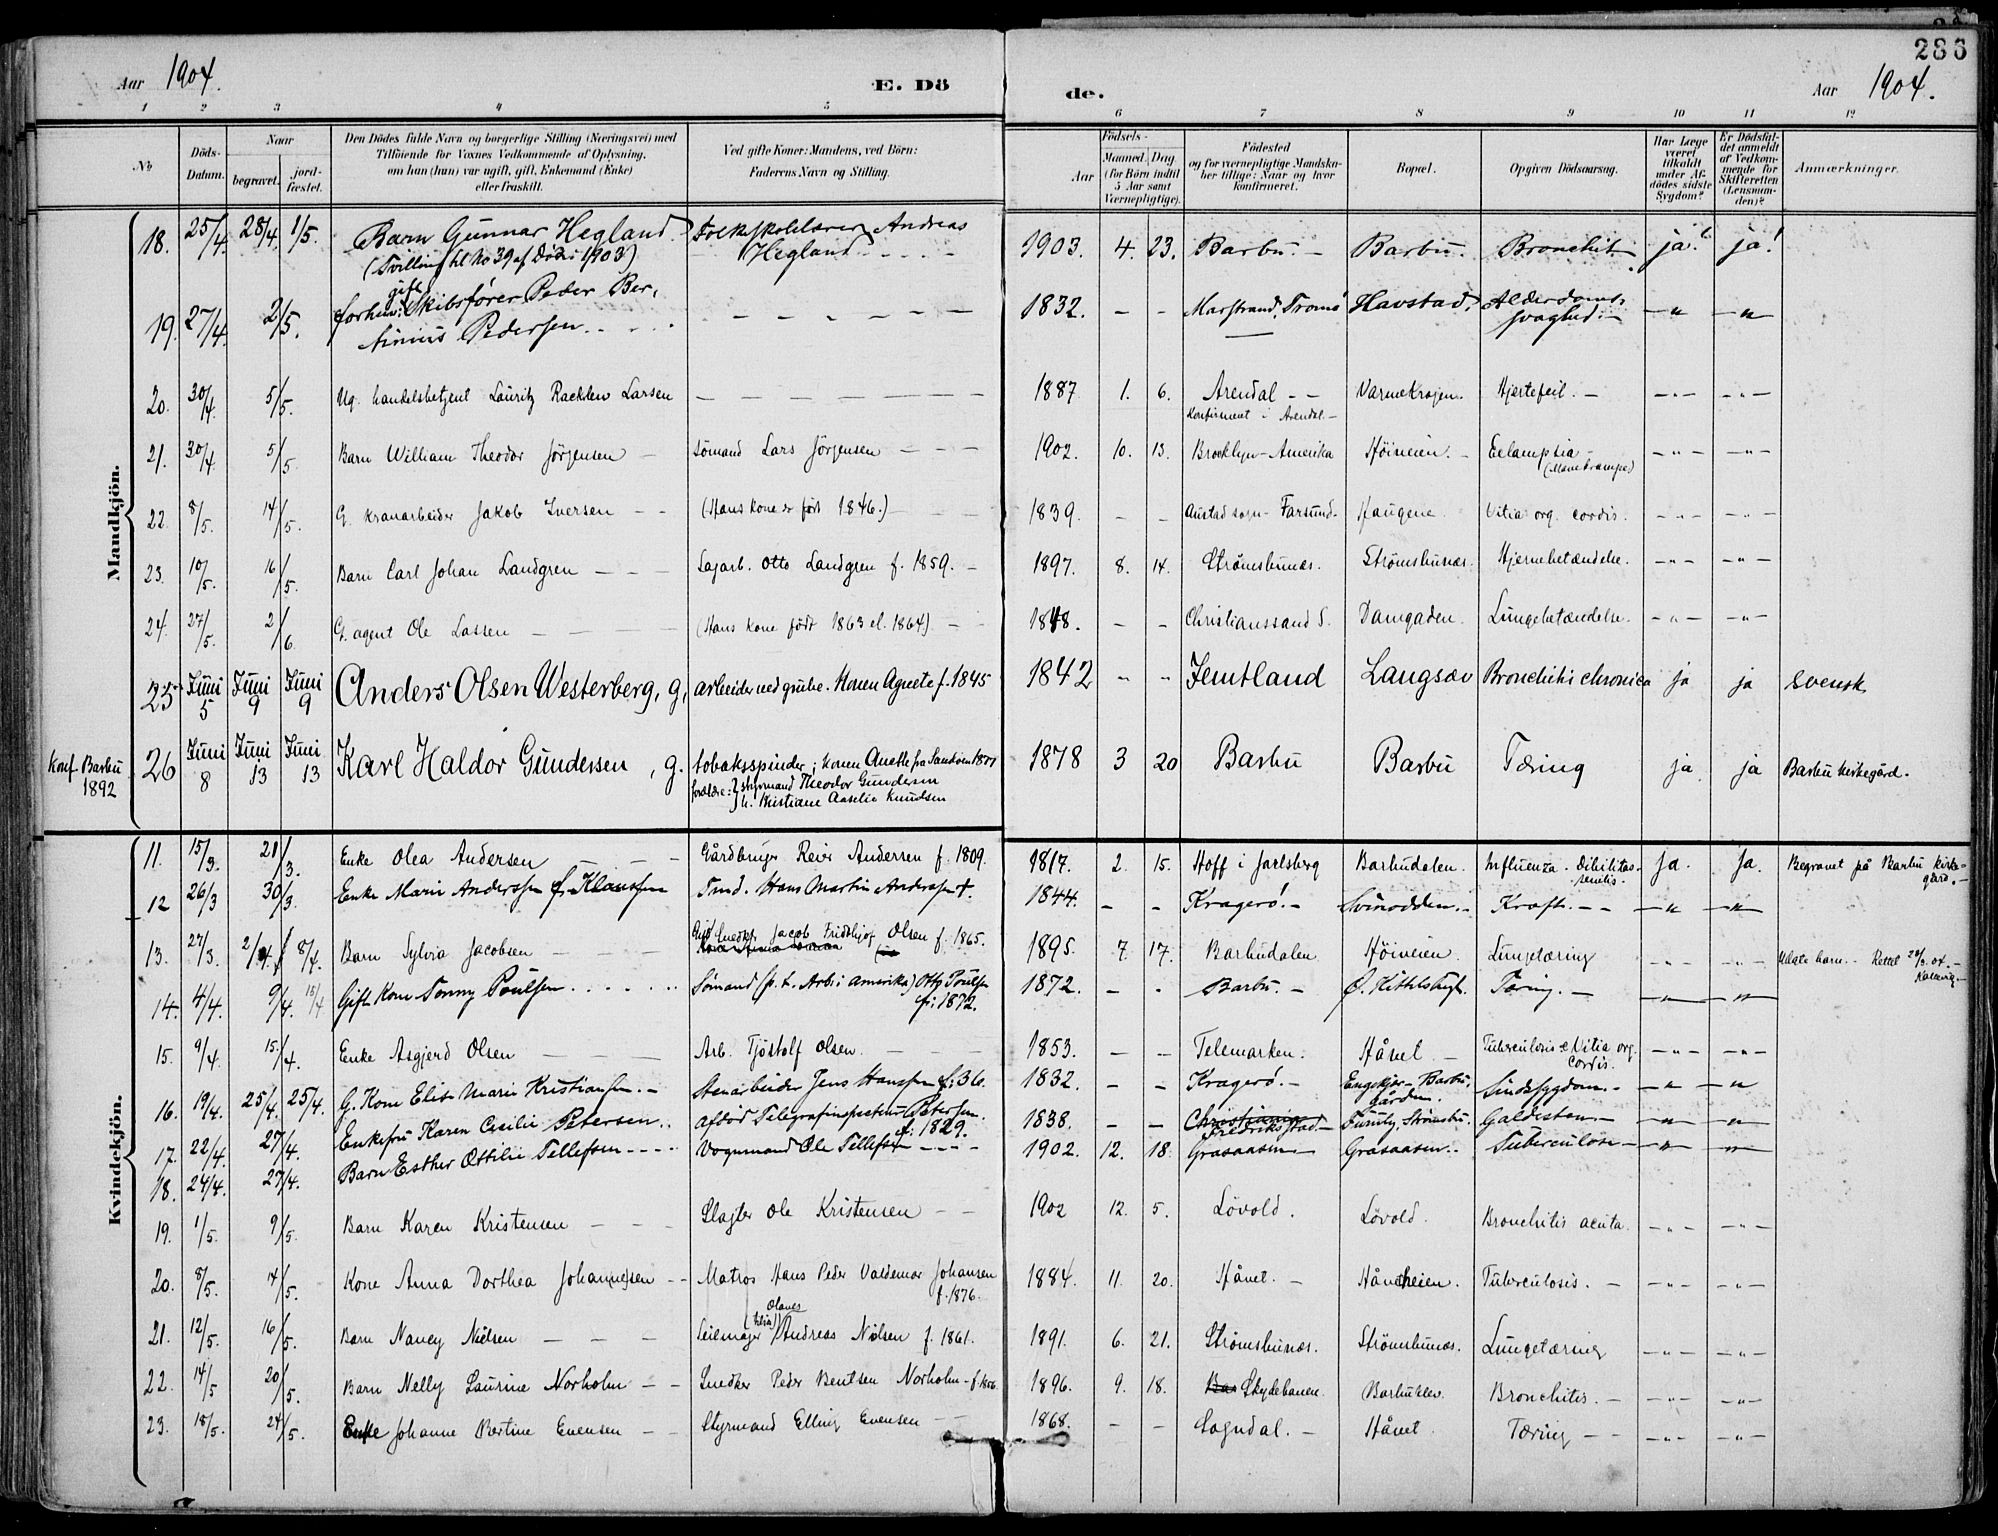 286
Aar 1904. E. Dö de. Aar 1904.
1 2 3 4 5 6 7 8 9 10 11 12
No Döds-Datum. Naar begravet. jord-fæstet. Den Dödes fulde Navn og borgerlige Stilling (Næringsvei) med Tilföiende for Voxnes Vedkommende af Oplysning, om han (hun) var ugift, gift, Enkemand (Enke) eller fraskilt. Ved gifte Koner: Mandens, ved Börn: Faderens Navn og Stilling. Födsels- Aar Maaned. Dag (for Börn indtil 5 Aar samt Værnepligtige). Födested og for værnepligtige Mandskaber tillige: Naar og hvor konfirmeret. Bopæl. Opgiven Dödsaarsag. Har Læge været tilkaldt under Afdödes sidste Sygdom? Er Dödsfaldet anmeldt af Vedkommende for Skifteretten (Lensmanden)? Anmærkninger.
Mandkjön.
18. 25/4 28/4 1/5. Barn Gunnar Hegland. (Tvilling til No 39 af Döde i 1903) Folkeskolelærer Andreas Hegland 1903. 4. 23. Barbu. Barbu. Bronchit. ja! ja!
19. 27/4. 2/5. forhen: gift Skibsfører Peder Ber, tinius Pedersen 1832. - - Marstrand, Tromö Havstad. Alderdoms, svaghed. -"- -"-
20. 30/4. 5/5. Ug. handelsbetjent Lauritz Larsen 1887. 1. 6. Arendal Konfirmeret i Arendal Hjertefeil. -"- -"-
21. 30/4 5/5 Barn William Theodor Jörgensen Sömand Lars Jörgensen 1902. 10. 13. Brooklyn - Amerika Höiveien. Eclampsia -"- -"-
22. 8/5. 14/5. G. kranarbeider Jakob Iversen (Hans kone er født 1846.) 1839. - - Austad sogn - Farsund. Haugene. Vitia org. cordis. -"- -"-
23. 10/5. 16/5. Barn Carl Johan Landgren Sagarb. Otto Landgren f. 1859. 1897. 8. 14. Strömsbunæs. Strömsbunæs. Hjernebetændelse. -"- -"-
24. 27/5. 2/6 G. agent Ole Lassen (Hans kone født 1863 el. 1864) 1848. - - Christianssand S. Damgaden. Lungebetændelse. -"- -"-
25 Juni 5 Juni 9 Juni 9 Anders Olsen Westerberg, g, arbeider ved grube. Konen Agnete f. 1845 1842 " " Jemtland Langsæv Bronchitis chronica ja ja svensk
Konf. Barbu 1892 26 Juni 8 Juni 13 Juni 13 Karl Haldor Gundersen, g. tobaksspinder; konen Anette fra Sandöen forældre: styrmand Theodor Gundersen h. Kristiane Aaselie Knudsen 1878 3 20 Barbu Barbu Tæring ja ja Barbu kirkegård.
Kvindekjön.
11. 15/3. 21/3. Enke Olea Andersen Gårdbruger Reier Andersen f. 1809. 1817. 2. 15. Hoff i Jarlsberg Barbudalen. Influenza. Dibilitas senilis. Ja. Ja. Begravet på Barbu kirkegård.
12 26/3 30/3. Enke Marie Anderssen f. Klaussen Tmd. Hans Martin Anderssen †. 1844. - - Kragerö! Svinodden. Kræft. -"- -"-
13. 27/3. 2/4. 8/4. Barn Sylvia Jacobsen Snedker Jacob Fridthjof Olsen f. 1865. 1895. 7. 17. Barbudalen Höiveien. Lungetæring -"- -"- Uægte barn. Rettet 28/3. 04.
14. 4/4. 9/4. 15/4 Gift Kone Tomny Poulsen Sömand (p. t. Arb. i Amerika) Otto Poulsen f: 1872. 1872. - - Barbu. Ö. Kittelsbugt. Tæring. -"- -"-
15. 9/4. 15./4. Enke Asgjerd Olsen Arb. Tjöstolf Olsen. 1853. - - Telemarken. Hånet. Tuberculosis & Vitia org. Cordis. -"- -"-
16. 19/4. 25/4. 25/4. G. Kone Elise Marie Kristiansen. Stenarbeider Jens Hanssen f: 36. 1832. - - Kragerö. Engekjær - Barbu, gården. Sindssygdom. -"- -"-
17. 22/4. 27/4. Enkefru Karen Cecilie Petersen. afdöd Telegrafinspecteur Petersen. f: 1829. 1838. - - Fredriksstad Strömsbu. Galdesten -"- -"-
18. 24/4. 27/4. Barn Esther Ottilie Tellefsen Vognmand Ole Tellefsen 1902. 12. 18. Græsaasen Græsaasen. Tuberculose -"- -"-
19. 1/5. 9/5. Barn Karen Kristensen Slagter Ole Kristensen 1902 12. 5. Lövold. Lövold. Bronchitis acuta. -"- -"-
20. 8/5. 14/5. Kone Anna Dorthea Johan(ne)sen Matros Hans Peder Valdemar Johansen f. 1876. 1884. 11. 20. Hånet. Håneheien. Tuberculosis. -"- -"-
21. 12/5. 16/5. Barn Nancy Nielsen Seilmager Olaves Andreas Nielsen f. 1861. 1891. 6. 21. Strömsbunæs. Strömsbunæs. Lungetæring -"- -"-
22. 14/5 20/5. Barn Nelly Laurine Norholm Snedker Peder Bentsen Norholm - f. 1856 1896. 9. 18. Skydebanen. Barbuklev. Bronchitis. -"- -"-
23. 18/5. 24/5. Enke Johanne Bertine Evensen Styrmand Elling Evensen 1868. - - Sogndal. Hånet. Tæring -"- -"-